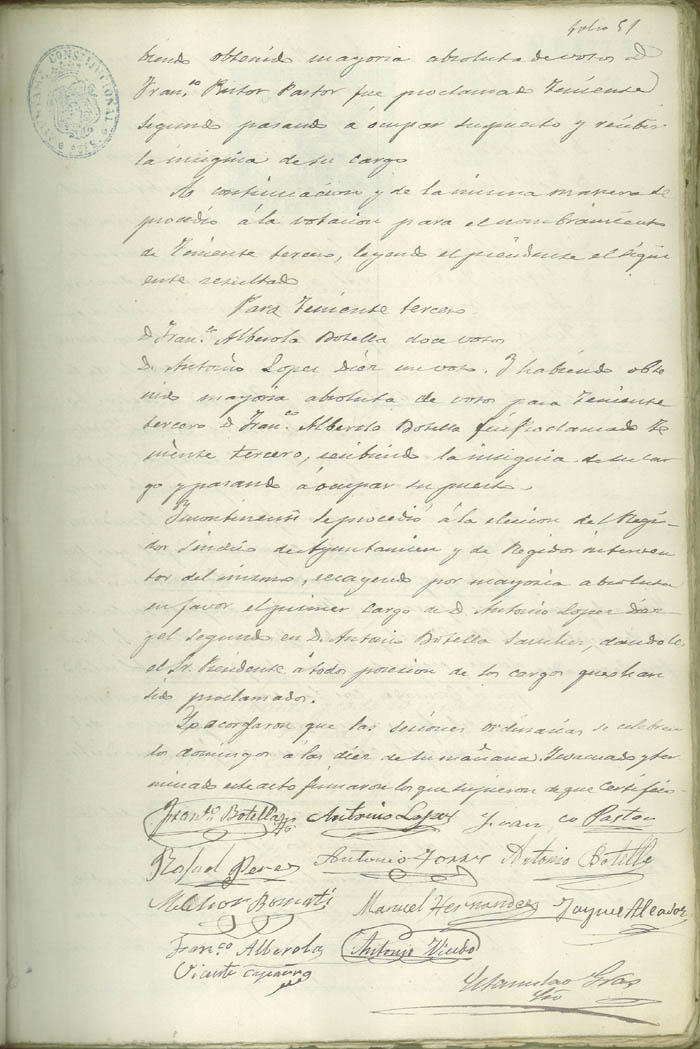 folio 51
biendo obtenido mayoria absoluta de votos D
Fran.co Pastor Pastor fue proclamado Teniente
segundo pasando á ocupar su puesto y recibir
la insignia de su cargo
A continuacion y de la misma manera se
procedio á la votacion para el nombramiento
de Teniente tercero, leyendo el presidente el sigui
ente resultado
Para Teniente tercero
D. Fran.co Alberola Botella doce votos
D. Antonio Lopez Diez un voto. Y habiendo obte
nido mayoria absoluta de votos para Teniente
tercero D. Fran.co Alberola Botella fué proclamado Te
niente tercero, recibiendo la insignia de su car
go y pasando á ocupar su puesto.
Incontinenti se procedió á la eleccion del Regi-
dor Sindico de Ayuntamien y de Regidor interven
tor del mismo, recayendo por mayoria absoluta
en favor el primer cargo de D. Antonio Lopez Diez
y el segundo en D. Antonio Botella Sanchez, dandole
el Sr. Presidente á todos posesion de los cargos que han
sido proclamados.
Y acordaron que las sesiones ordinarias se celebren
los domingos á las diez de su mañana. Y evacuado y ter
minado este acto firmaron los que supieron de que certifico.-
Fran.co Botella Antonio Lopez Fran co Pastor
Rafael Perez Antonio Torres Antonio Botella
Melchor Bonmati Manuel Hernandez Jayme Alcador
Fran.co Alberola Antonio Viudo
Vicente
Estanislao Gras
Srio
CONSTITUCIONAL